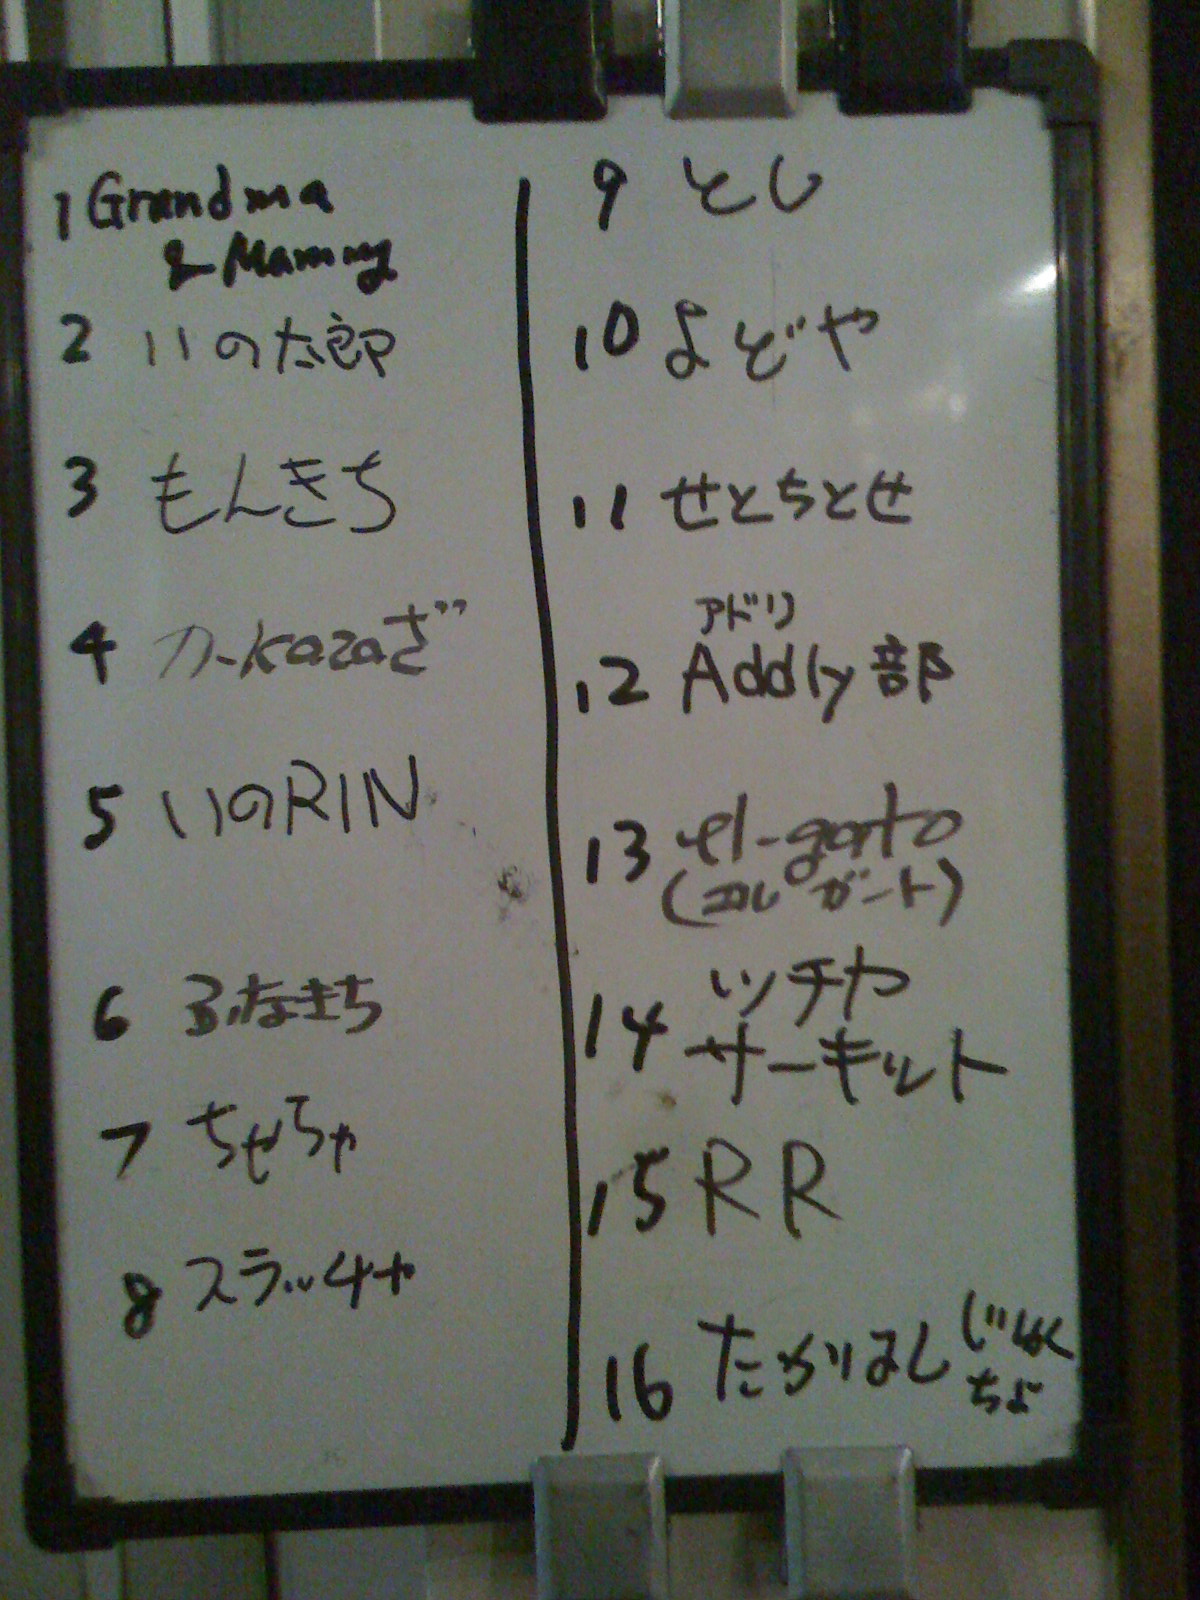 1 Grandma
& Mammy
2 いの太郎
3 もんきち
4 カ-kazaざ
5 いのRIN
6 ふなきち
7 ちゃちゃ
8 スラッチャ
9 とし
10 よどや
11 せとちとせ
アドリ
12 Addly部
13 el-gato
(エルガート)
14 ツチヤ
サーキット
15 RR
16 たかはし